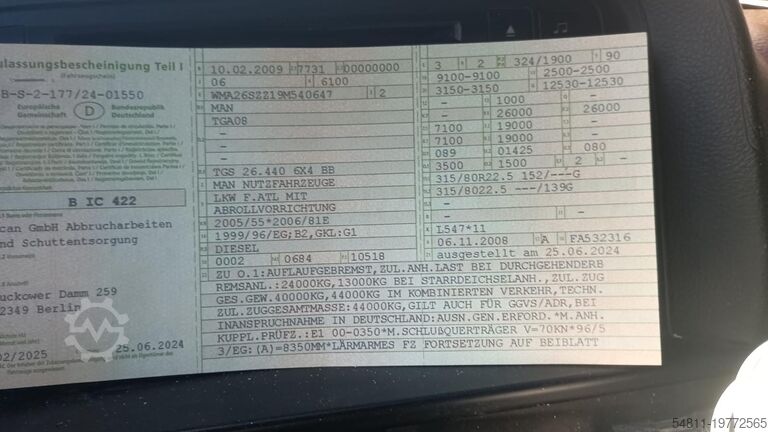 ulassungsbescheinigung Teil I
(Fahrzeugschein)
B-S-2-177/24-01550
Europäische Gemeinschaft D Bundesrepublik Deutschland
B IC 422
can GmbH Abbrucharbeiten
nd Schuttentsorgung
uckower Damm 259
2349 Berlin
02/2025 25.06.2024
10.02.2009 7731 00000000
06 6100
WMA26SZZ19M540647 2
MAN
TGA08
-
-
TGS 26.440 6X4 BB
MAN NUTZFAHRZEUGE
LKW F.ATL MIT
ABROLLVORRICHTUNG
2005/55*2006/81E
1999/96/EG;B2,GKL:G1
DIESEL
0002 0684 10518
3 2 324/1900 90
9100-9100 2500-2500
3150-3150 12530-12530
- 1000 -
- 26000 26000
7100 19000 -
7100 19000 -
089 01425 080
3500 1500 2 -
315/80R22.5 152/---G
315/8022.5 ---/139G
-
L547*11
06.11.2008 A FA532316
ausgestellt am 25.06.2024
ZU O.1:AUFLAUFGEBREMST,ZUL.ANH.LAST BEI DURCHGEHENDERB
REMSANL.:24000KG,13000KG BEI STARRDEICHSELANH.,ZUL.ZUG
GES.GEW.40000KG,44000KG IM KOMBINIERTEN VERKEHR,TECHN.
ZUL.ZUGGESAMTMASSE:44000KG,GILT AUCH FÜR GGVS/ADR,BEI
INANSPRUCHNAHME IN DEUTSCHLAND:AUSN.GEN.ERFORD.*M.ANH
KUPPL.PRÜFZ.:E1 00-0350*M.SCHLUßQUERTRÄGER V=70KN*96/5
3/EG:(A)=8350MM*LÄRMARMES FZ FORTSETZUNG AUF BEIBLATT
54811-19772565